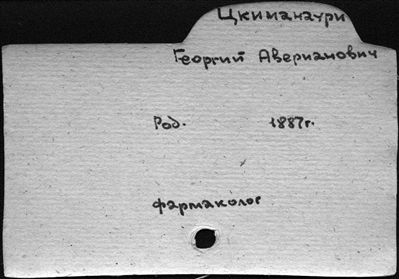 Цкиманаури
Георгий Аверианович
Род. 1887г.
фармаколог